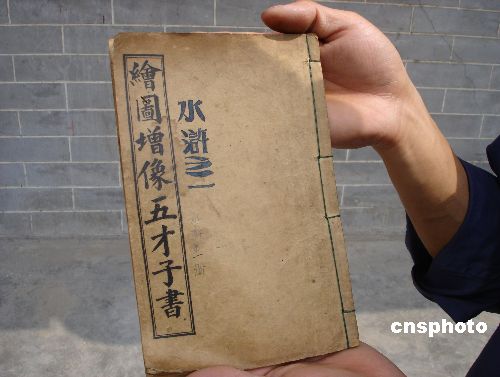 繪圖增像五才子書
水滸
cnsphoto